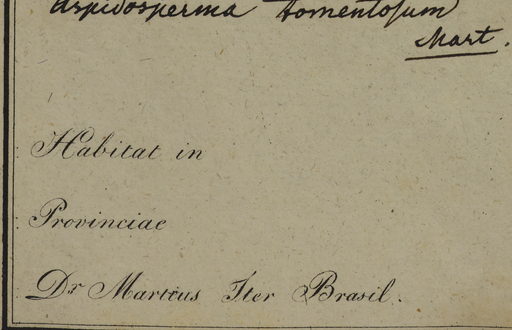 Aspidosperma tomentosum
Mart.
Habitat in
Provinciae
Dr Martius Iter Brasil.